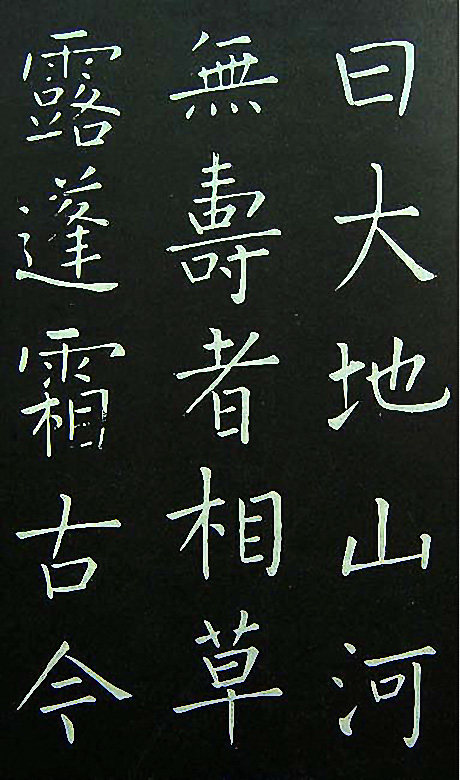 曰大地山河
無壽者相草
露蓬霜古今